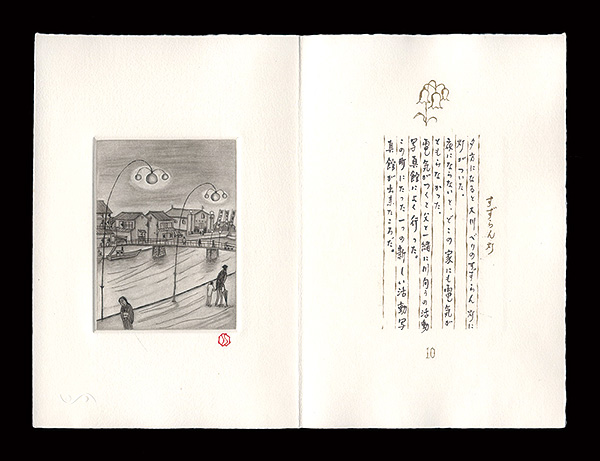 すずらん灯
夕方になると大川べりのすずらん灯に
灯がついた。
夜にならないと、どこの家にも電気が
ともらなかった。
電気がつくと父と一緒に川向うの活動
写真館によく行った。
この町にたった一つの新しい活動写
真館が出来たころだ。
10